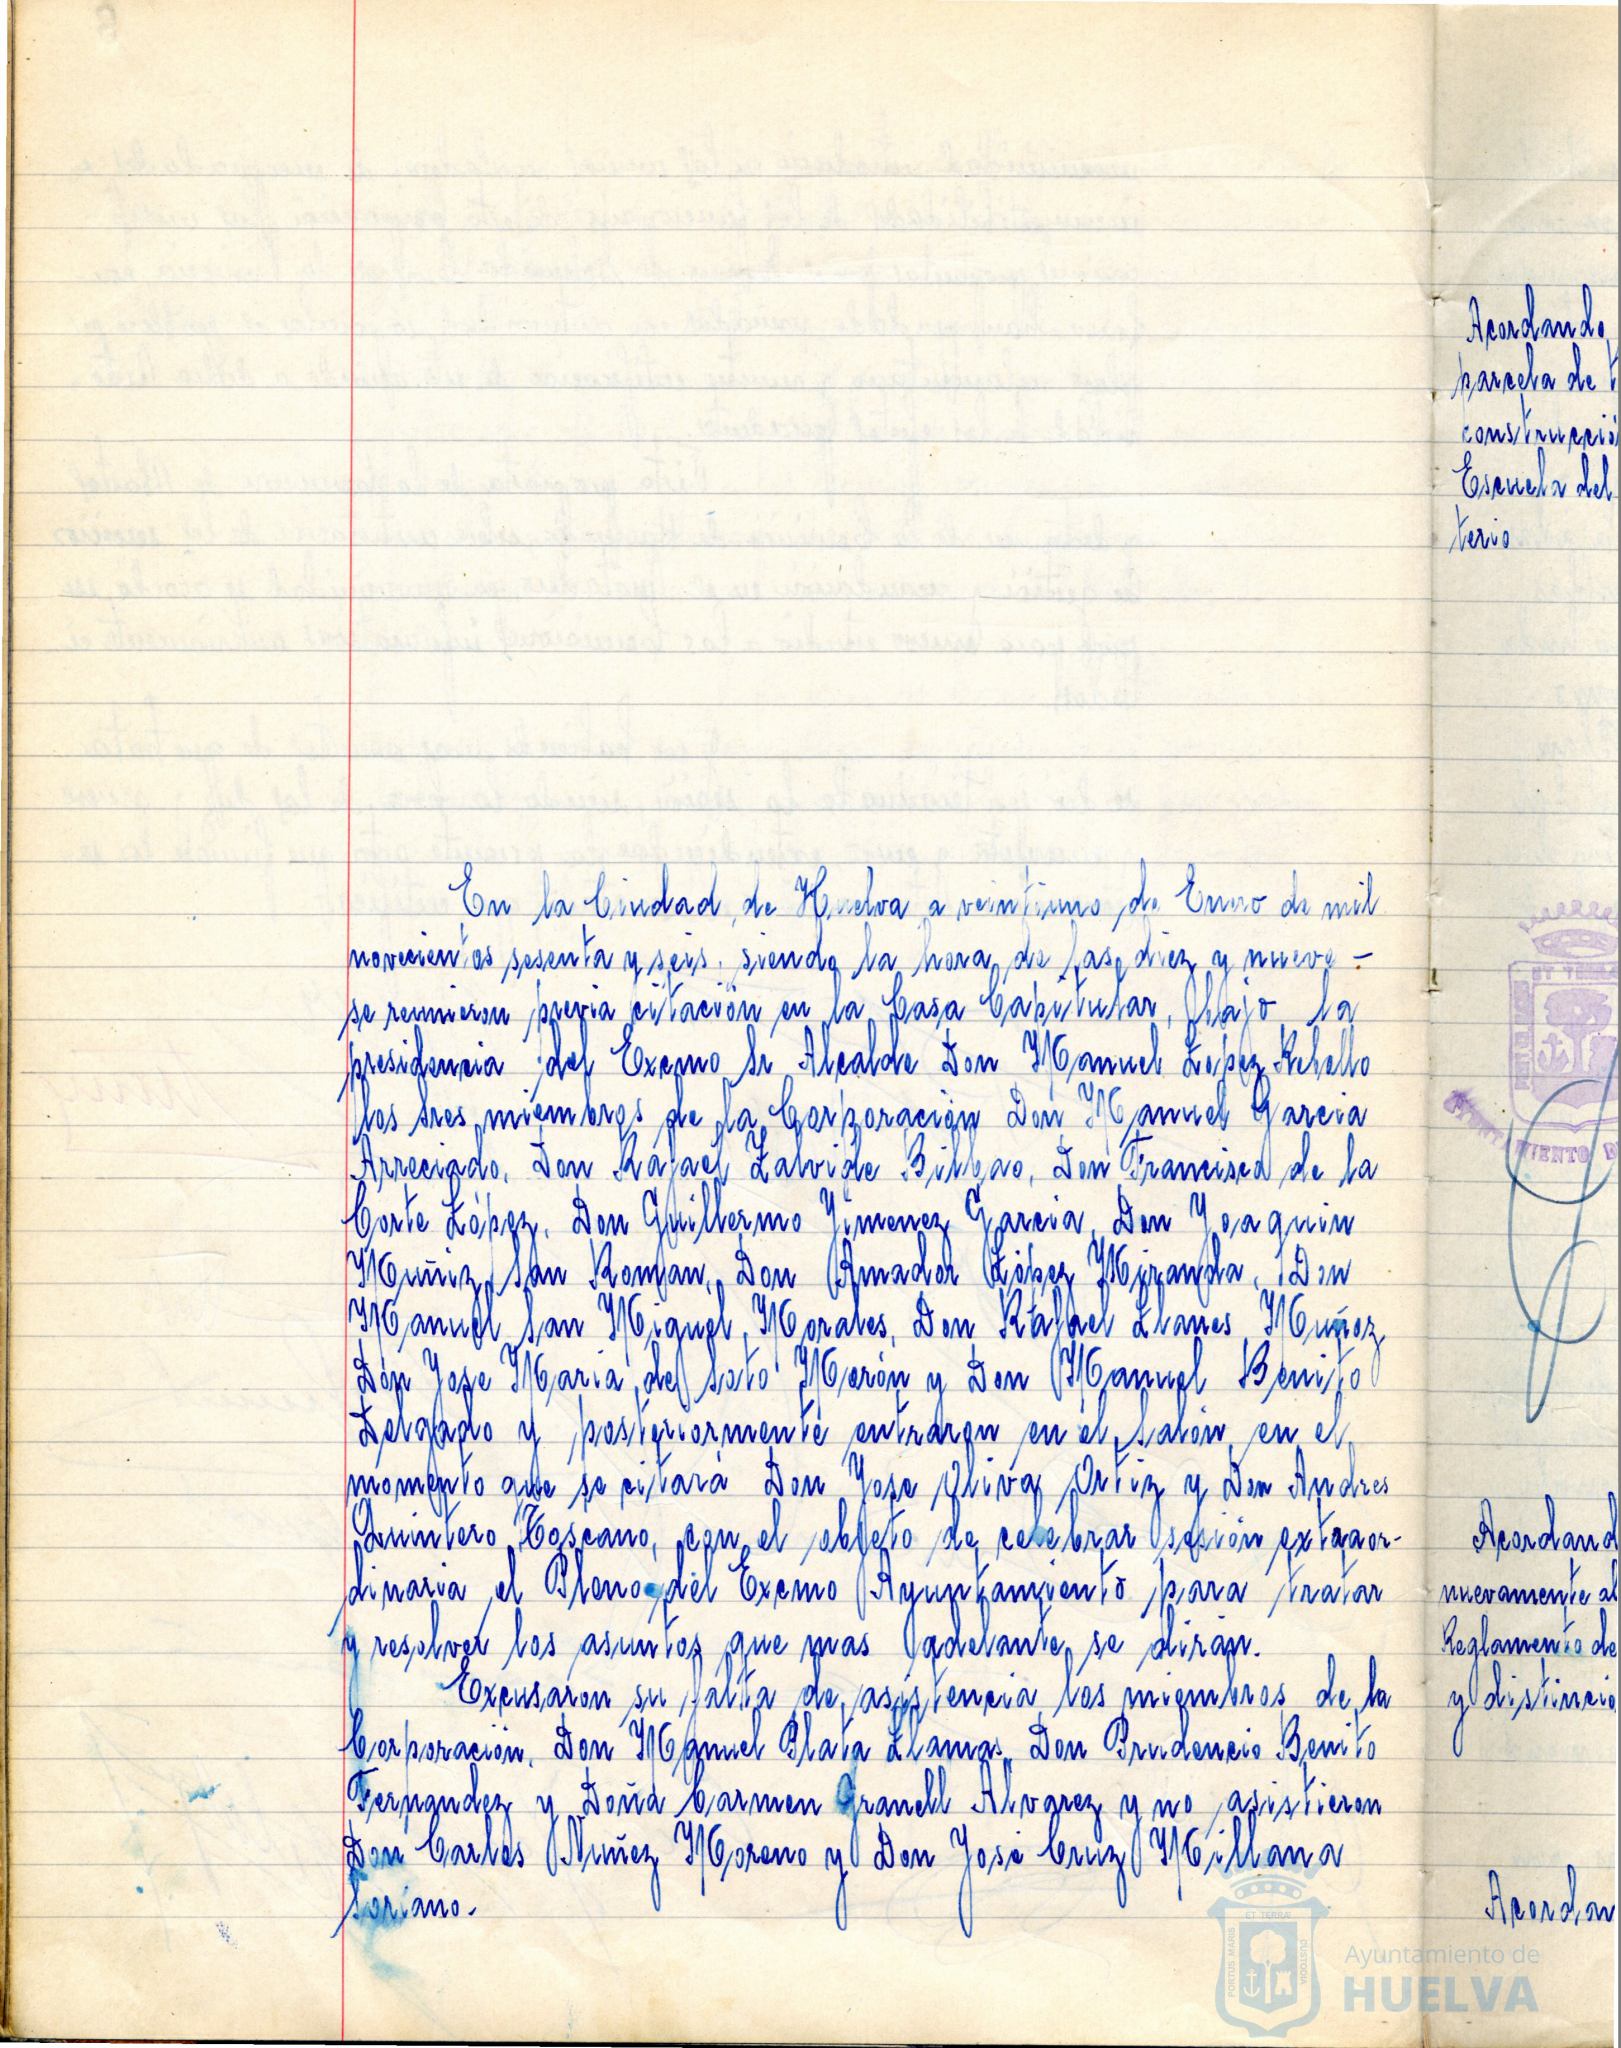 En la Ciudad de Huelva a veintiuno de Enero de mil
novecientos sesenta y seis, siendo la hora de las diez y nueve -
se reunieron previa citación en la Casa Capitular, bajo la
presidencia del Excmo Sr Alcalde Don Manuel López Rebollo
los sres miembros de la Corporación Don Manuel Garcia
Arreciado, Don Rafael Zalvide Bilbao, Don Francisco de la
Corte López, Don Guillermo Yimenez Garcia, Don Yoaquin
Muñiz San Roman, Don Amador López Miranda, Don
Manuel San Miguel Morales, Don Rafael Llanes Muñoz
Don Yose Maria del Soto Morón y Don Manuel Benito
Delgado y posteriormente entraron en el salón en el
momento que se citará Don Yose Oliva Ortiz y Don Andres
Quintero Toscano, con el objeto de celebrar sesión extraor-
dinaria el Pleno del Excmo Ayuntamiento para tratar
y resolver los asuntos que mas adelante se dirán.
Excusaron su falta de asistencia los miembros de la
Corporación, Don Manuel Plata Llamas, Don Prudencio Benito
Fernandez y Doña Carmen Granell Alvarez y no asistieron
Don Carlos Nuñez Moreno y Don José Cruz Millana
Soriano.
Acordando
parcela de t
construcció
Escuela del
terio
ET TERRA
AYUNTAMIENTO D
Acordand
nuevamente al
Reglamento de
y distincio
Acordan
PORTUS MARIS ET TERRÆ CUSTODIA
Ayuntamiento de
HUELVA